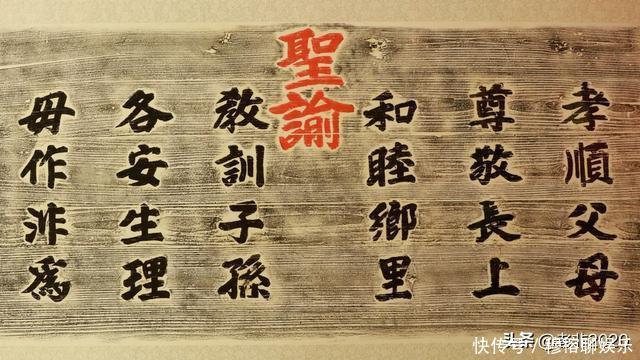 聖諭
孝順父母
尊敬長上
和睦鄉里
教訓子孫
各安生理
毋作非爲
头条 2020
快传号 / 聊娱乐